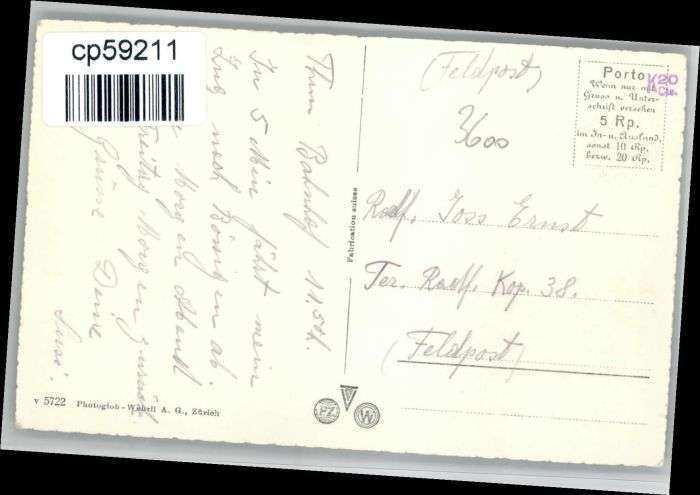 cp59211
Thun Bahnhof 11.50h.
In 5 Min fährt mein
Zug nach Bönigen ab.
Morgen Abend
Freitag Morgen zurück.
Grüsse Deine
Susi.
(Feldpost)
3600
Porto
Wenn nur mit
Gruss u. Unter-
schrift versehen
5 Rp.
im In- u. Ausland,
sonst 10 Rp.
bezw. 20 Rp.
K20
Radf. Joss Ernst
Ter. Radf. Kop. 38.
(Feldpost)
Fabrication suisse
v 5722 Photoglob-Wehrli A. G., Zürich
PZ
W